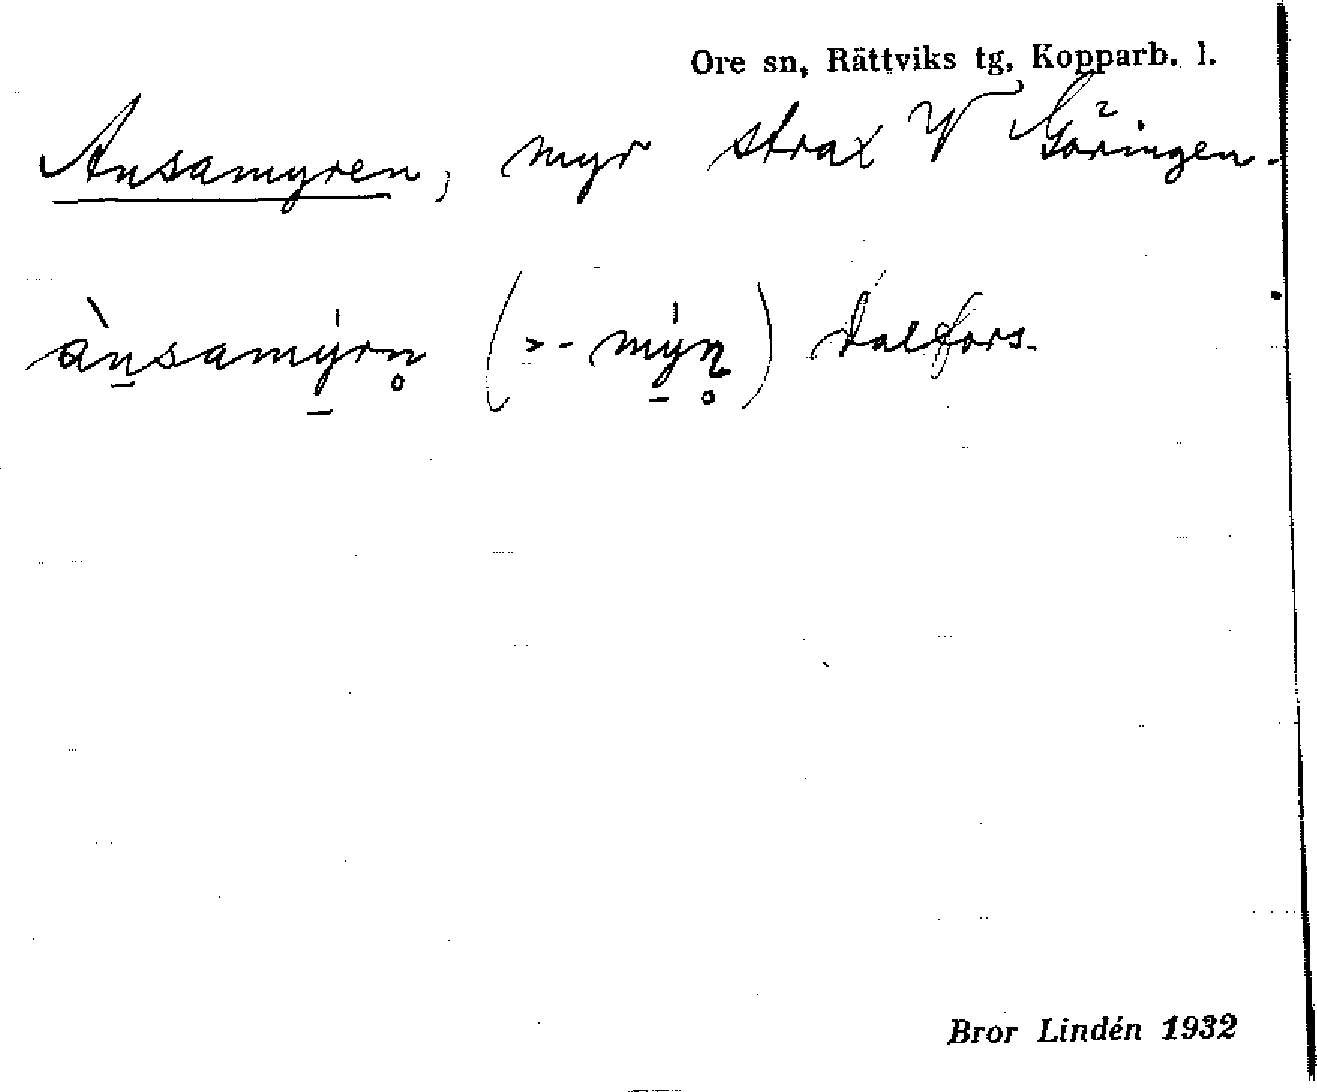 Ore sn, Rättviks tg, Kopparb. l.
Ansamyren, myr strax V Göringen.
àn̲samý̲rn̥ (>-mý̲n̥) Dalfors.
Bror Lindén 1932